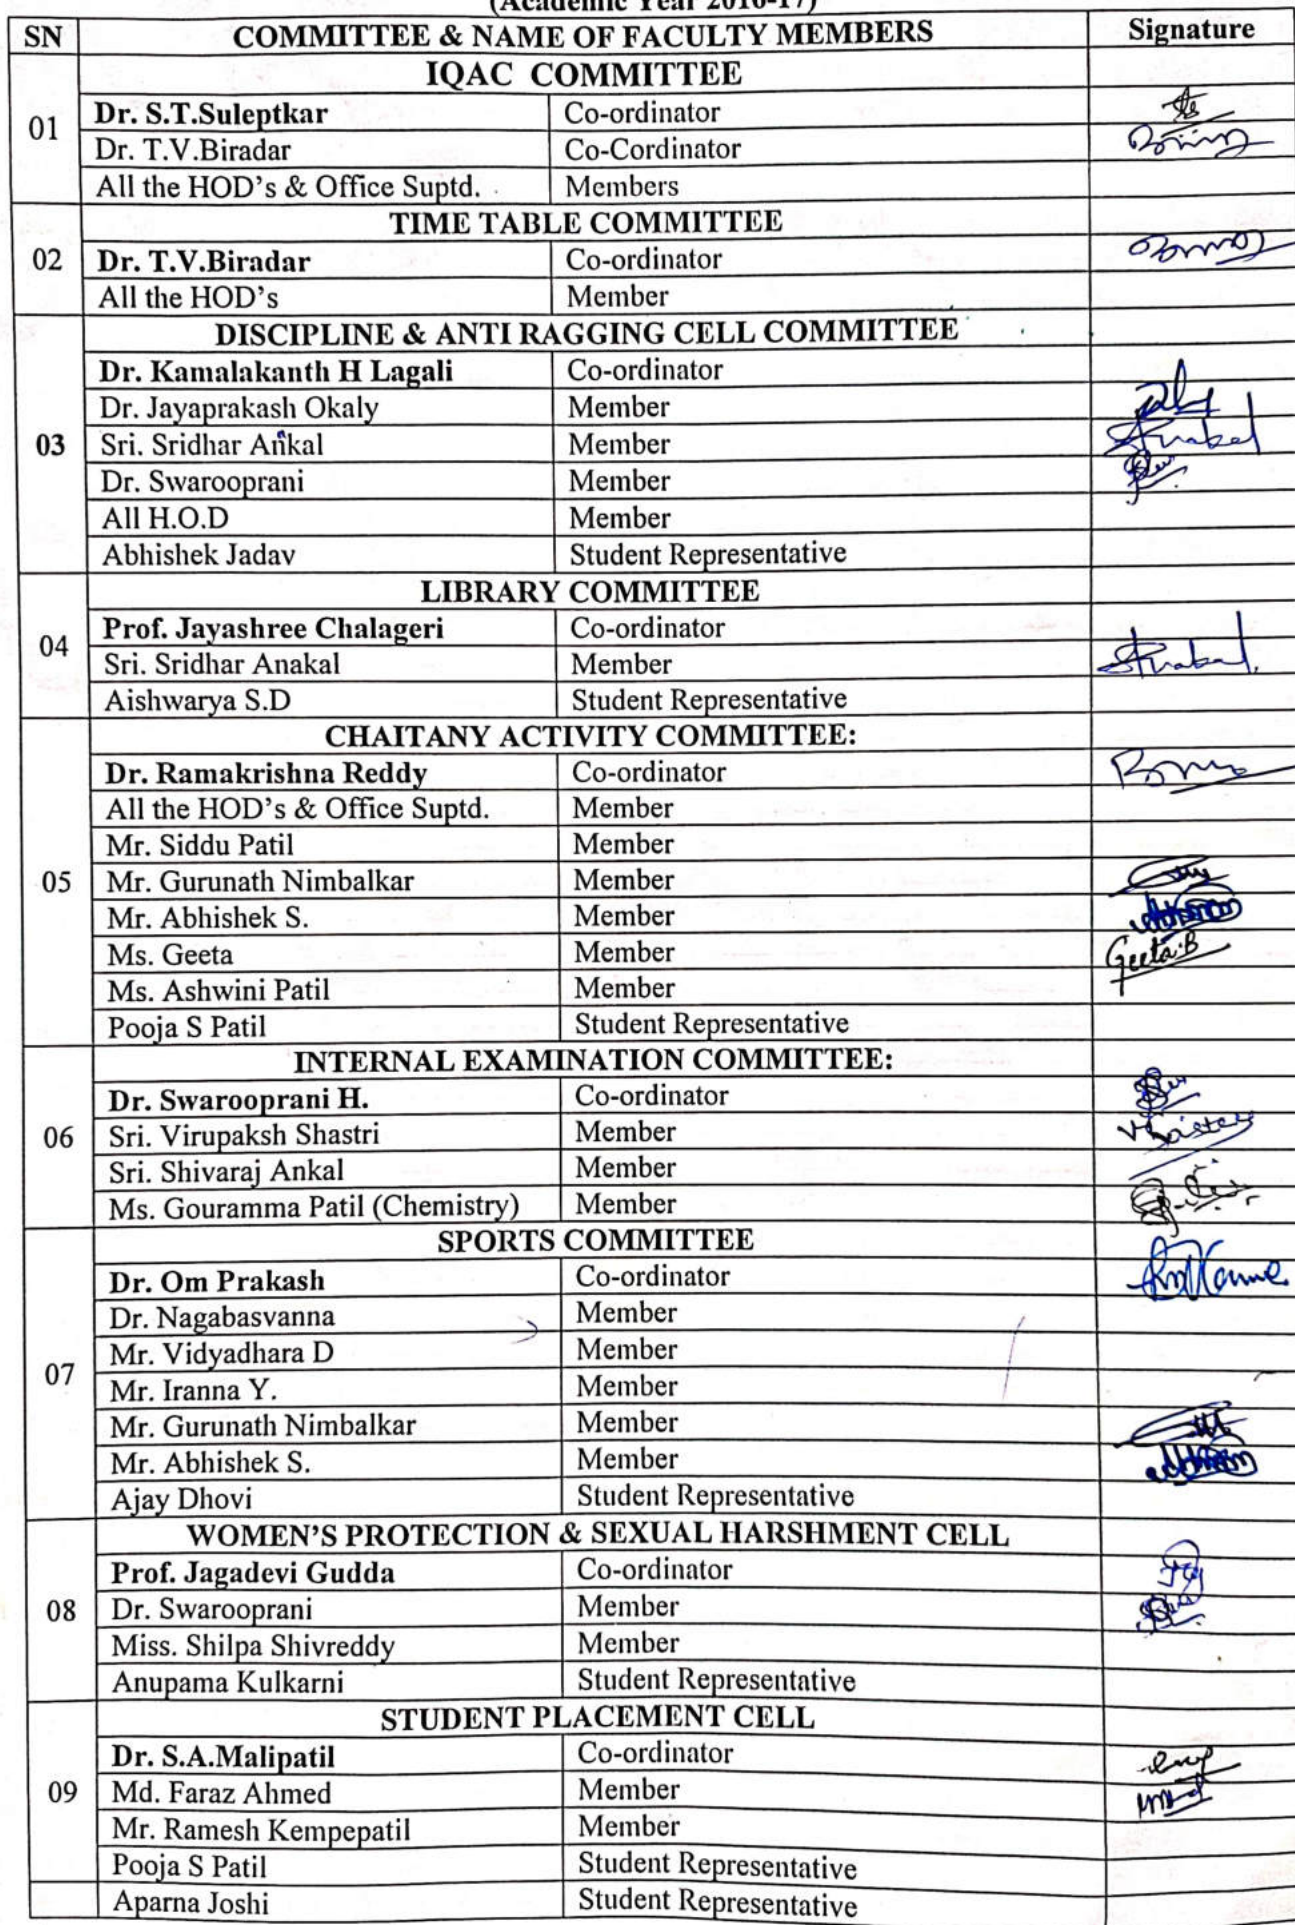 (Academic Year 2016-17)
SN COMMITTEE & NAME OF FACULTY MEMBERS Signature
IQAC COMMITTEE
01
Dr. S.T.Suleptkar Co-ordinator
Dr. T.V.Biradar Co-Cordinator
All the HOD's & Office Suptd. Members
TIME TABLE COMMITTEE
02 Dr. T.V.Biradar Co-ordinator
All the HOD's Member
DISCIPLINE & ANTI RAGGING CELL COMMITTEE
Dr. Kamalakanth H Lagali Co-ordinator
Dr. Jayaprakash Okaly Member
03 Sri. Sridhar Ankal Member
Dr. Swarooprani Member
All H.O.D Member
Abhishek Jadav Student Representative
LIBRARY COMMITTEE
Prof. Jayashree Chalageri Co-ordinator
04 Sri. Sridhar Anakal Member
Aishwarya S.D Student Representative
CHAITANY ACTIVITY COMMITTEE:
Dr. Ramakrishna Reddy Co-ordinator
All the HOD's & Office Suptd. Member
Mr. Siddu Patil Member
05 Mr. Gurunath Nimbalkar Member
Mr. Abhishek S. Member
Ms. Geeta Member Geeta.B
Ms. Ashwini Patil Member
Pooja S Patil Student Representative
INTERNAL EXAMINATION COMMITTEE:
Dr. Swarooprani H. Co-ordinator
06 Sri. Virupaksh Shastri Member
Sri. Shivaraj Ankal Member
Ms. Gouramma Patil (Chemistry) Member
SPORTS COMMITTEE
Dr. Om Prakash Co-ordinator
Dr. Nagabasvanna Member
Mr. Vidyadhara D Member
07 Mr. Iranna Y. Member
Mr. Gurunath Nimbalkar Member
Mr. Abhishek S. Member
Ajay Dhovi Student Representative
WOMEN'S PROTECTION & SEXUAL HARSHMENT CELL
Prof. Jagadevi Gudda Co-ordinator
08 Dr. Swarooprani Member
Miss. Shilpa Shivreddy Member
Anupama Kulkarni Student Representative
STUDENT PLACEMENT CELL
Dr. S.A.Malipatil Co-ordinator
09 Md. Faraz Ahmed Member
Mr. Ramesh Kempepatil Member
Pooja S Patil Student Representative
Aparna Joshi Student Representative